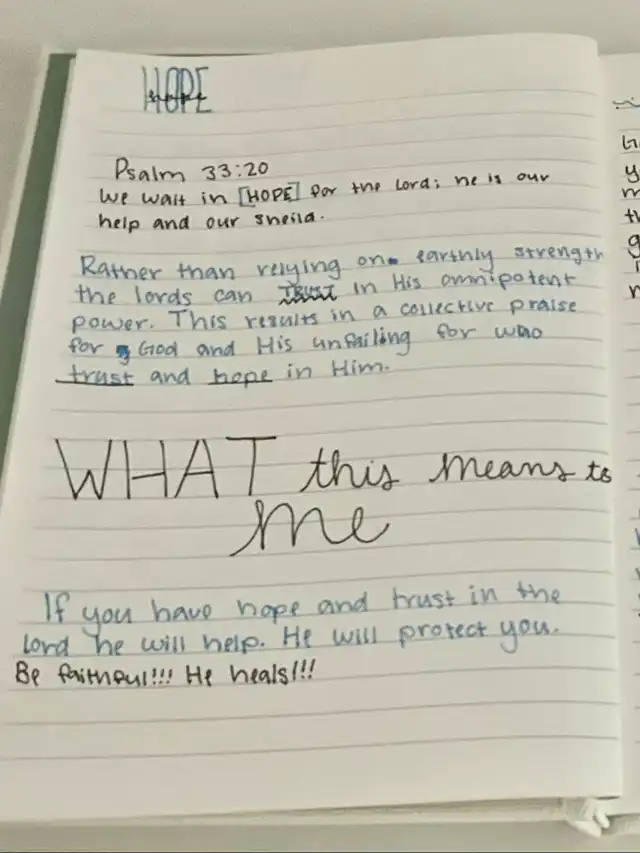 HOPE
Psalm 33:20
We wait in [HOPE] for the Lord; he is our
help and our sheild.
Rather than relying on earthly strength
the lords can TRUST in His omnipotent
power. This results in a collective praise
for God and His unfailing for who
trust and hope in Him.
WHAT this means to
me
If you have hope and trust in the
lord he will help. He will protect you.
Be faithful!!! He heals!!!